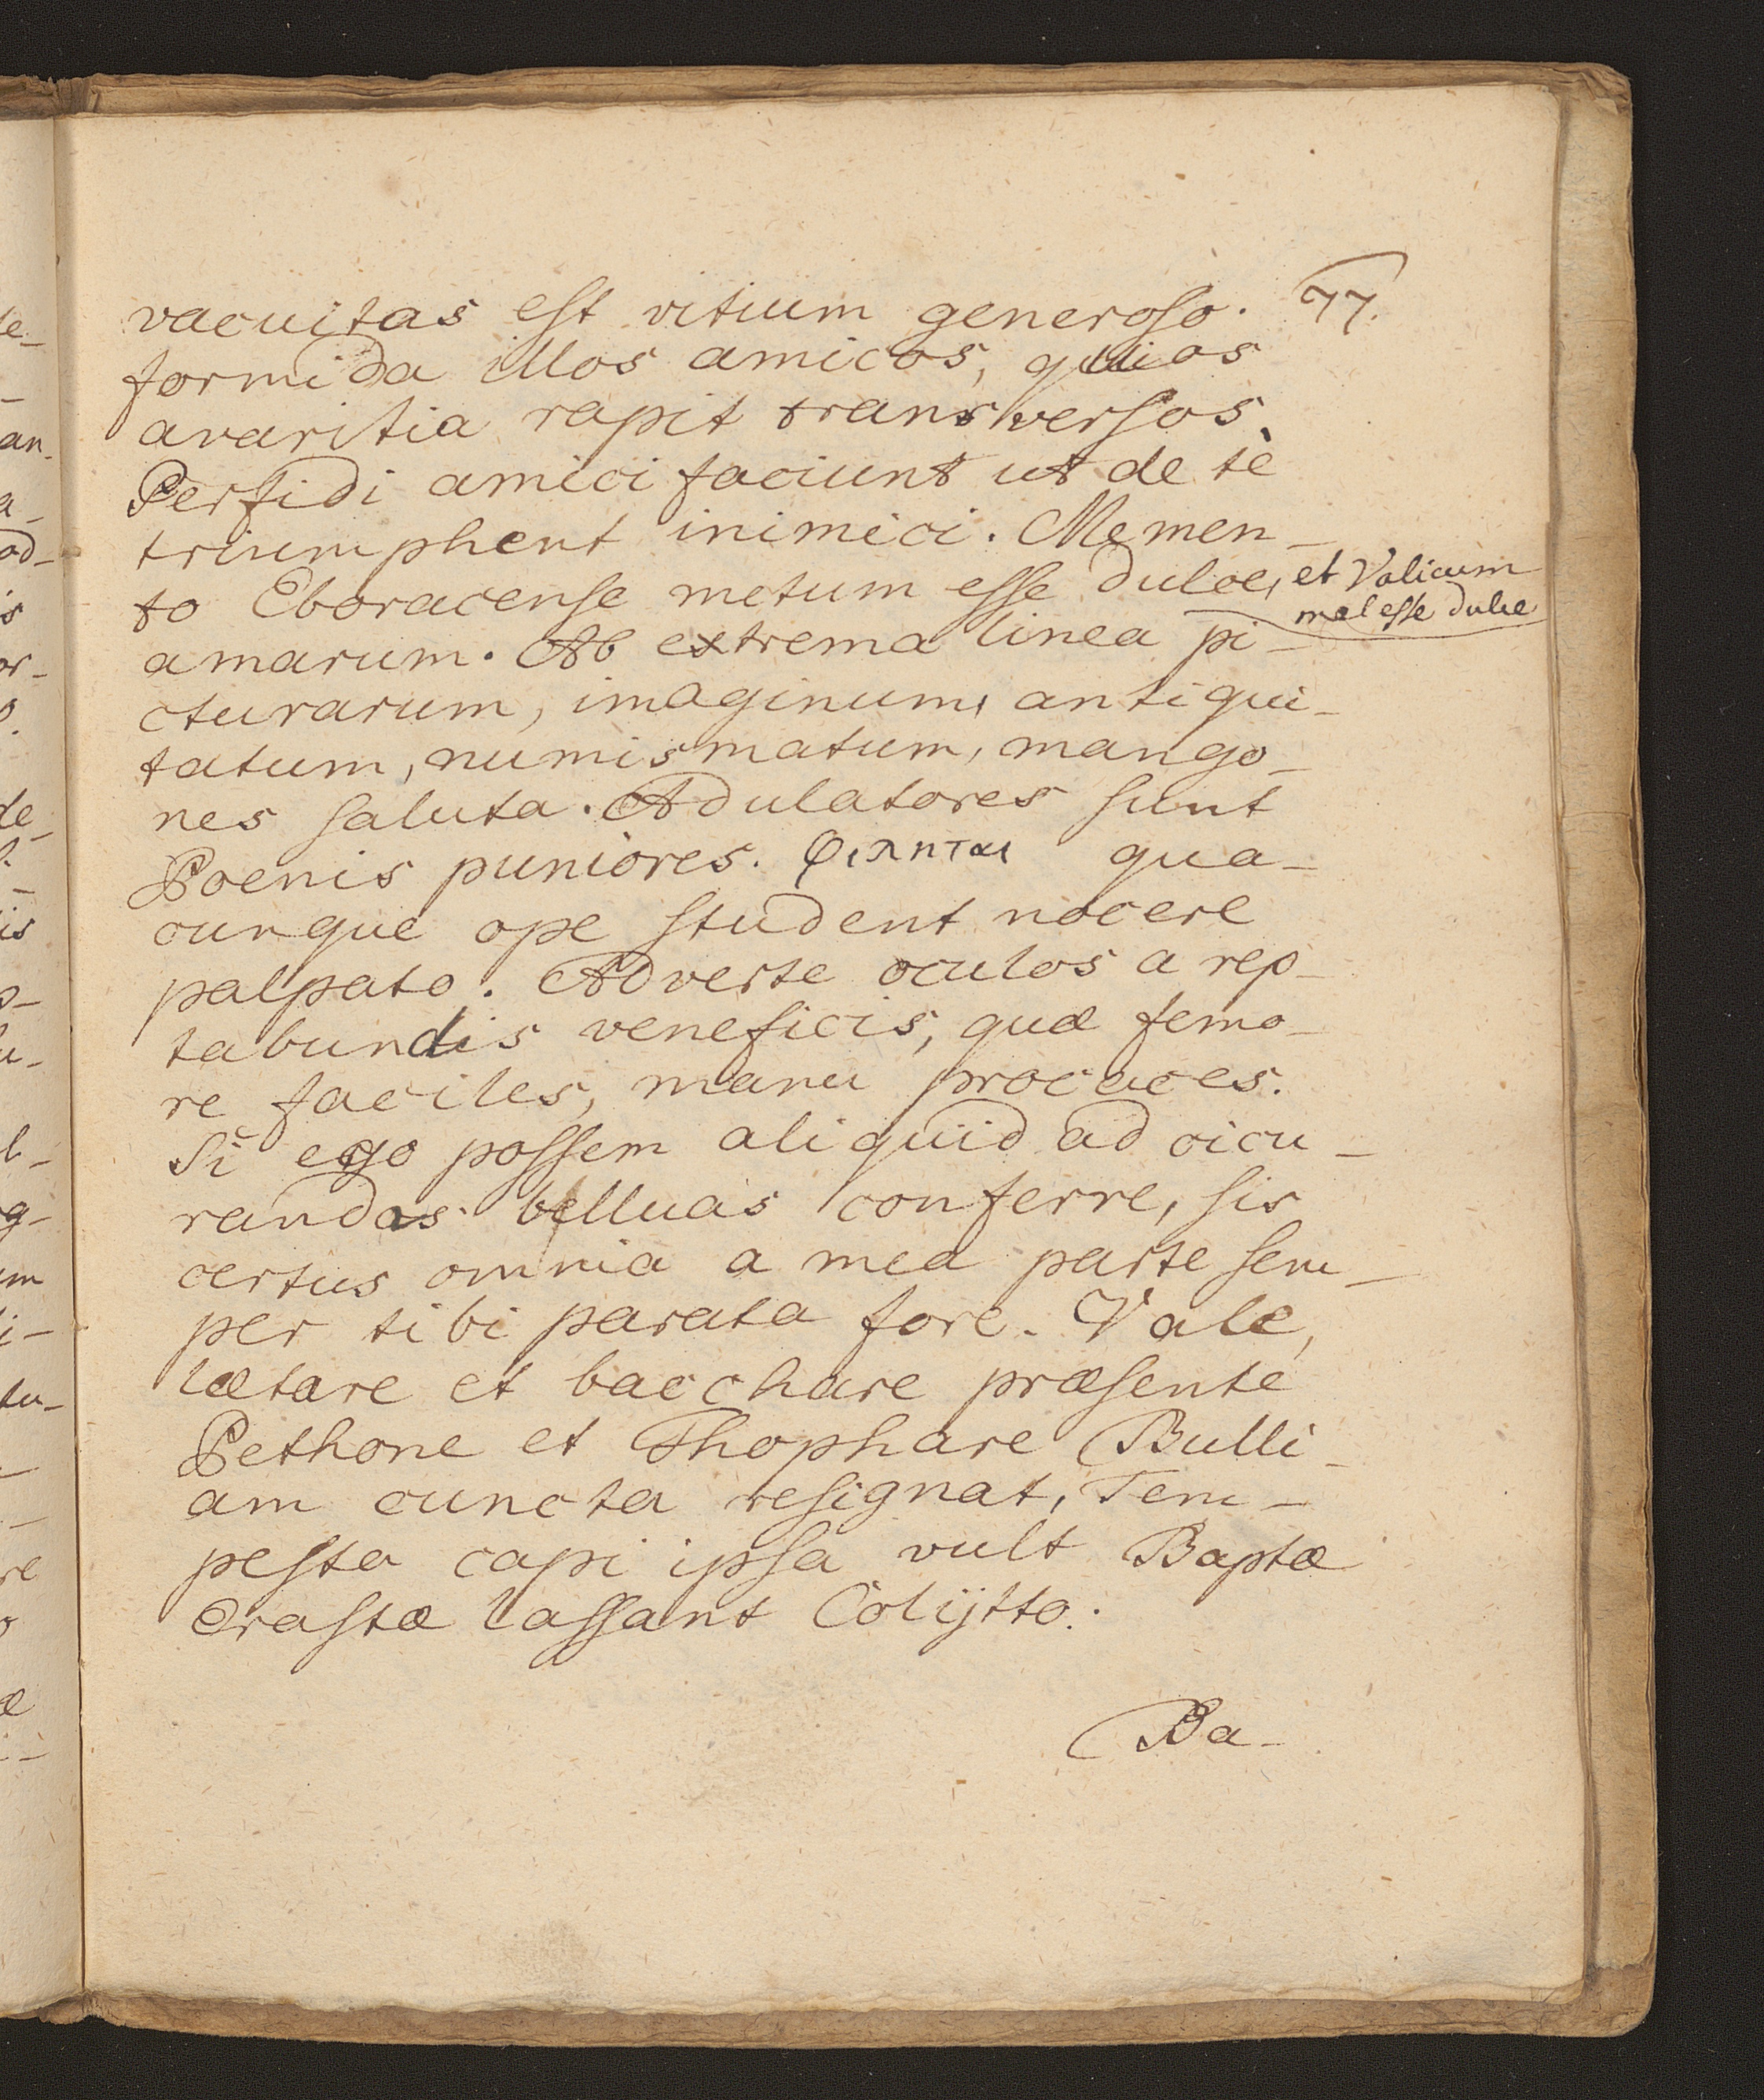 77.
vacuitas est vitium generoso.
formida illos amicos, quios
avaritia rapit transversos.
Perfidi amici faciunt ut de te
triumphent inimici. Memen-
to Eboracense metum esse dulce, et Valicum
mel esse dulce
amarum. Ab extrema linea pi-
cturarum, imaginum, antiqui-
tatum, numismatum, mango-
nes saluta. Adulatores sunt
Poenis puniores. Φιληται qua-
cunque ope student nocere
palpato. Adverte oculos a rep-
tabundis veneficis, quæ femo-
re faciles, manu procaces.
Si ego possem aliquid ad cicu-
randas belluas conferre, sis
certus omnia a mea parte sem-
per tibi parata fore. Vale,
lætare et bacchare præsente
Pethone et Thophare Bulli-
am cuncta resignat, Tem-
pesta capi ipsa vult Baptæ
Crastæ lassant Colÿtto.
Ba-